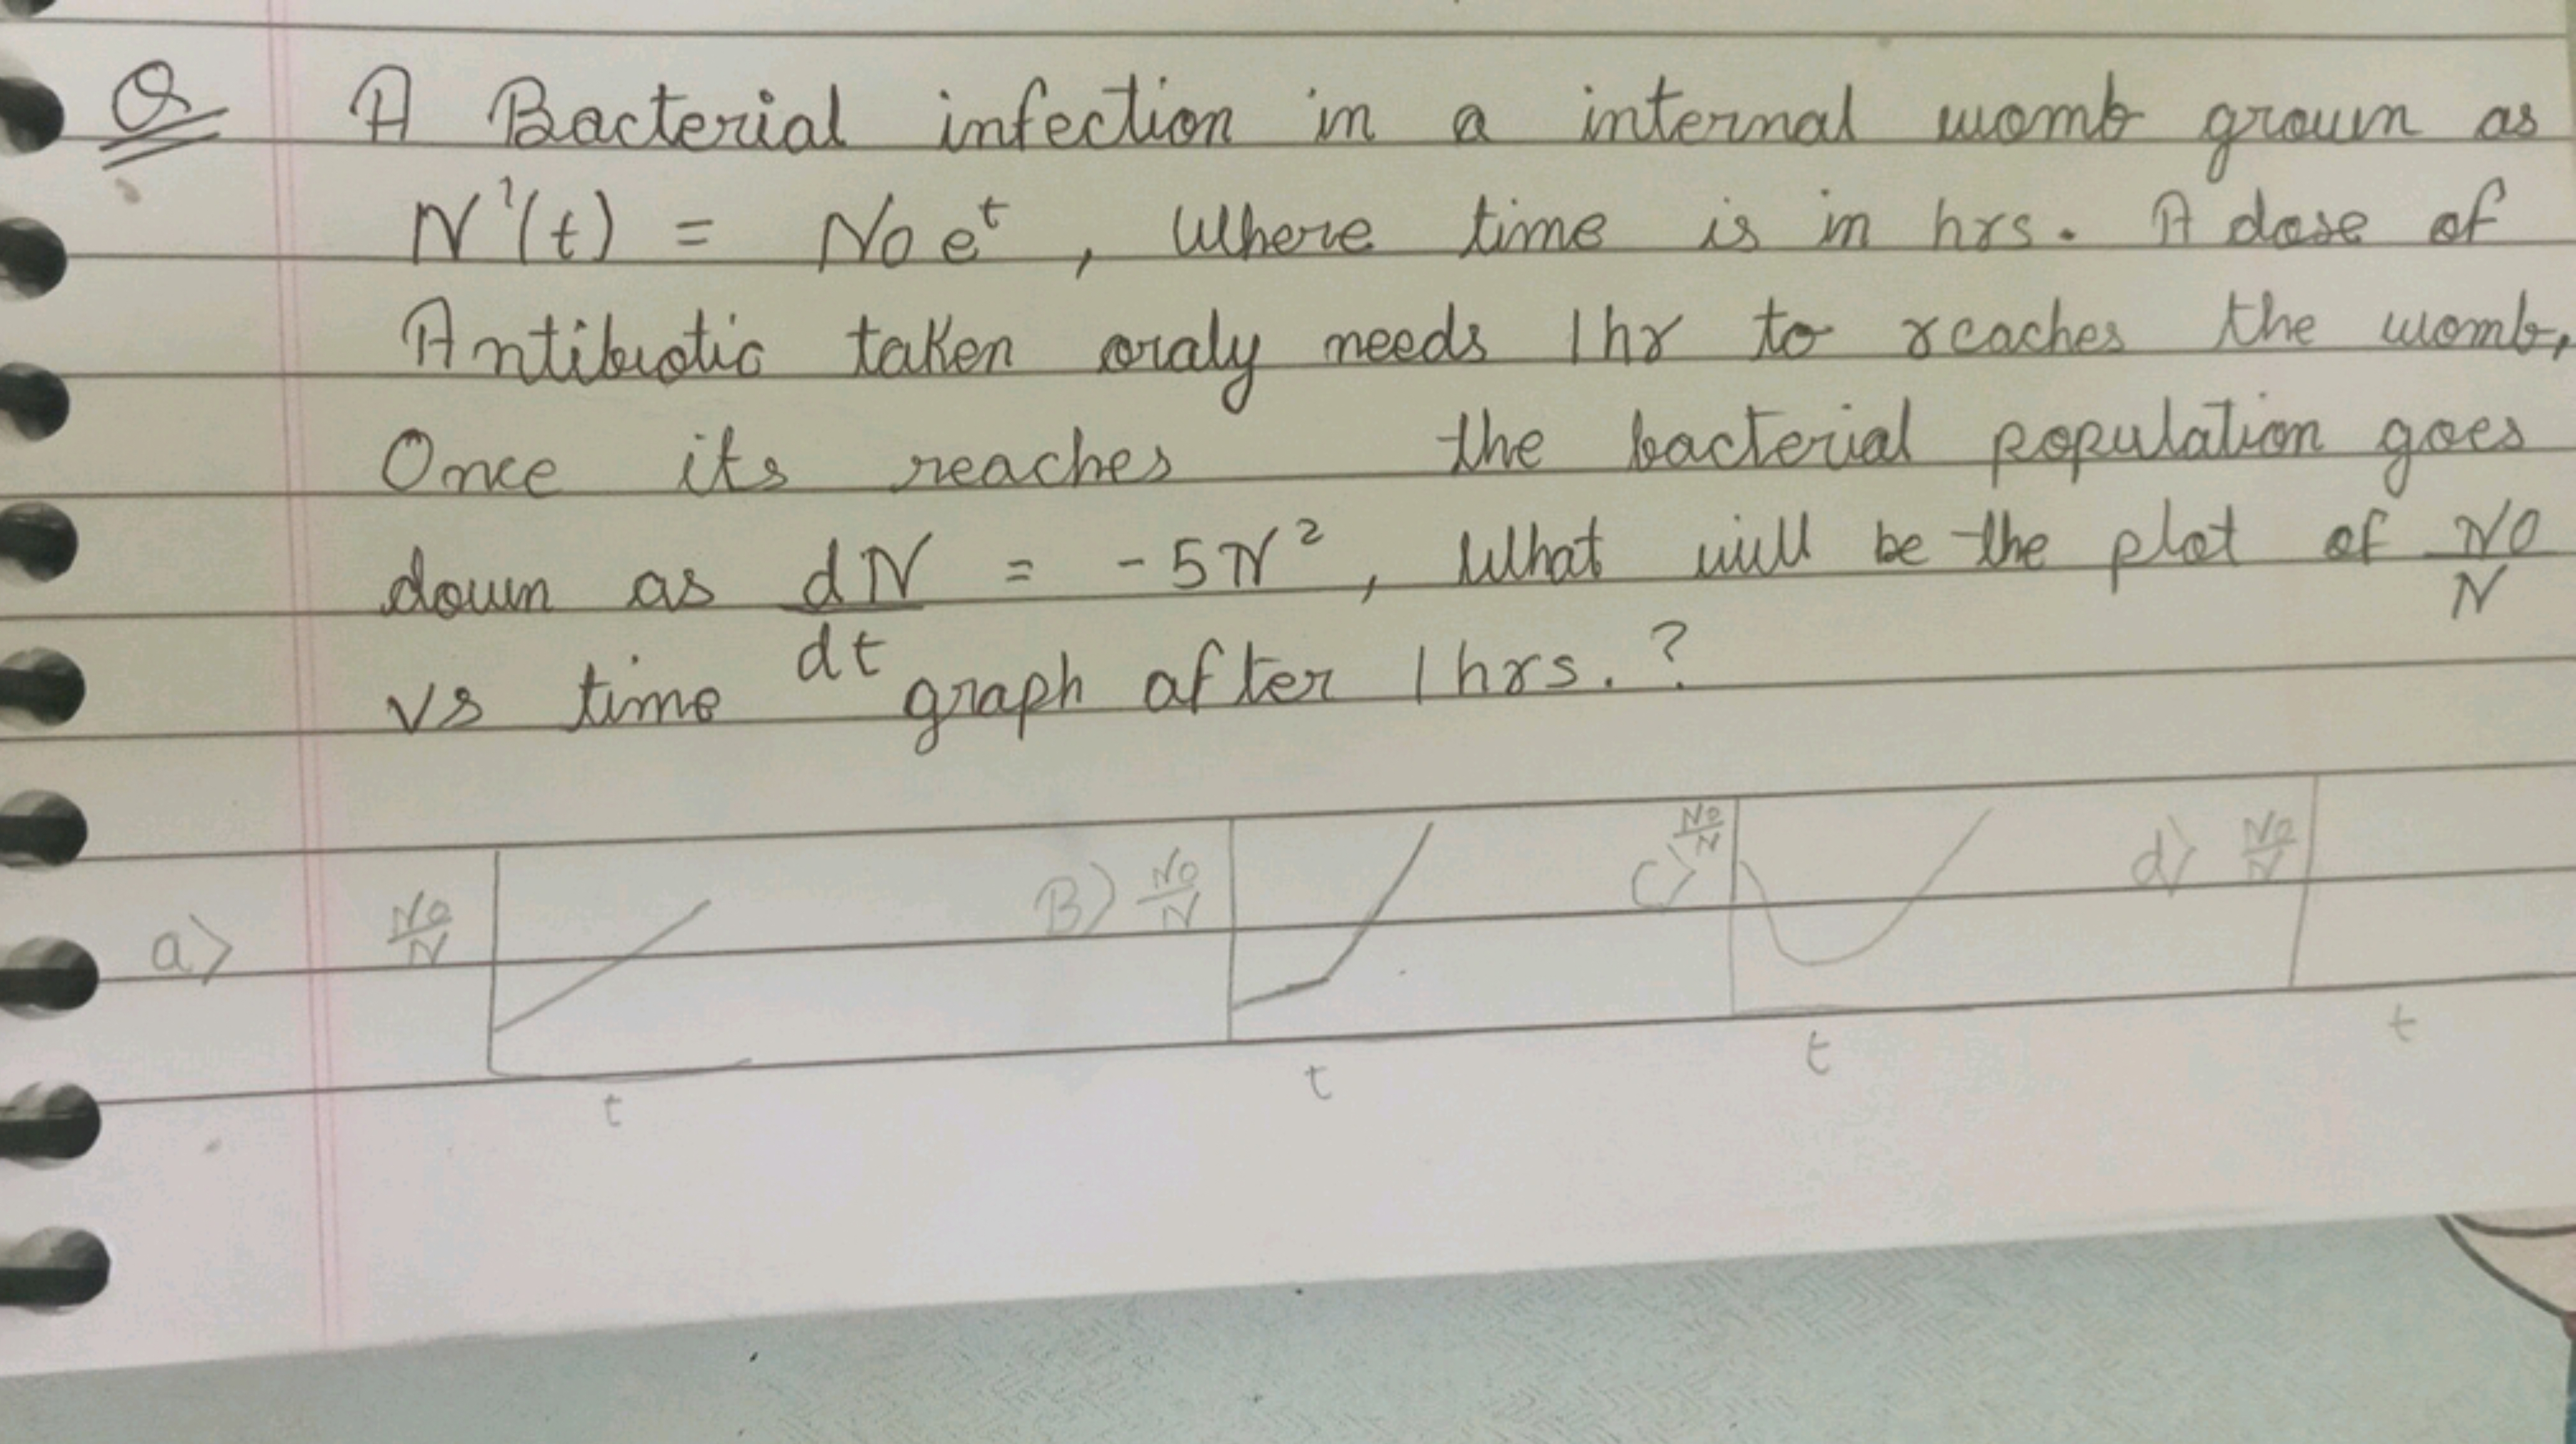 Q A Bacterial infection in a internal womb grown as
N'(t) = No e^t, where time is in hrs. A dose of
Antibiotic taken oraly needs 1hr to reaches the womb,
Once its reaches the bacterial population goes
down as dN/dt = -5N², What will be the plot of No/N
vs time graph after 1hrs.?
a) No/N t B) No/N t c) No/N t d) No/N t